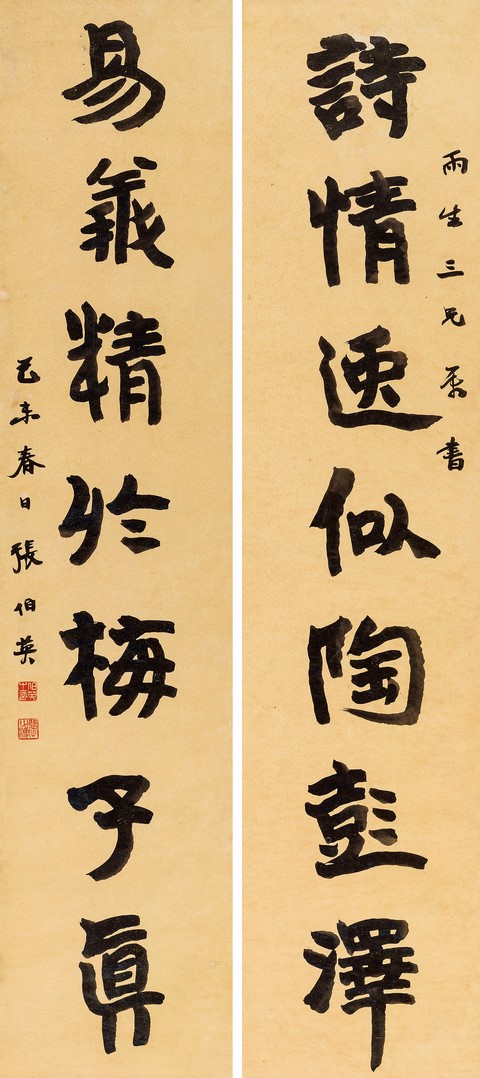 雨生三兄屬書
詩情逺似陶彭澤
易義精於梅子眞
己未春日張伯英